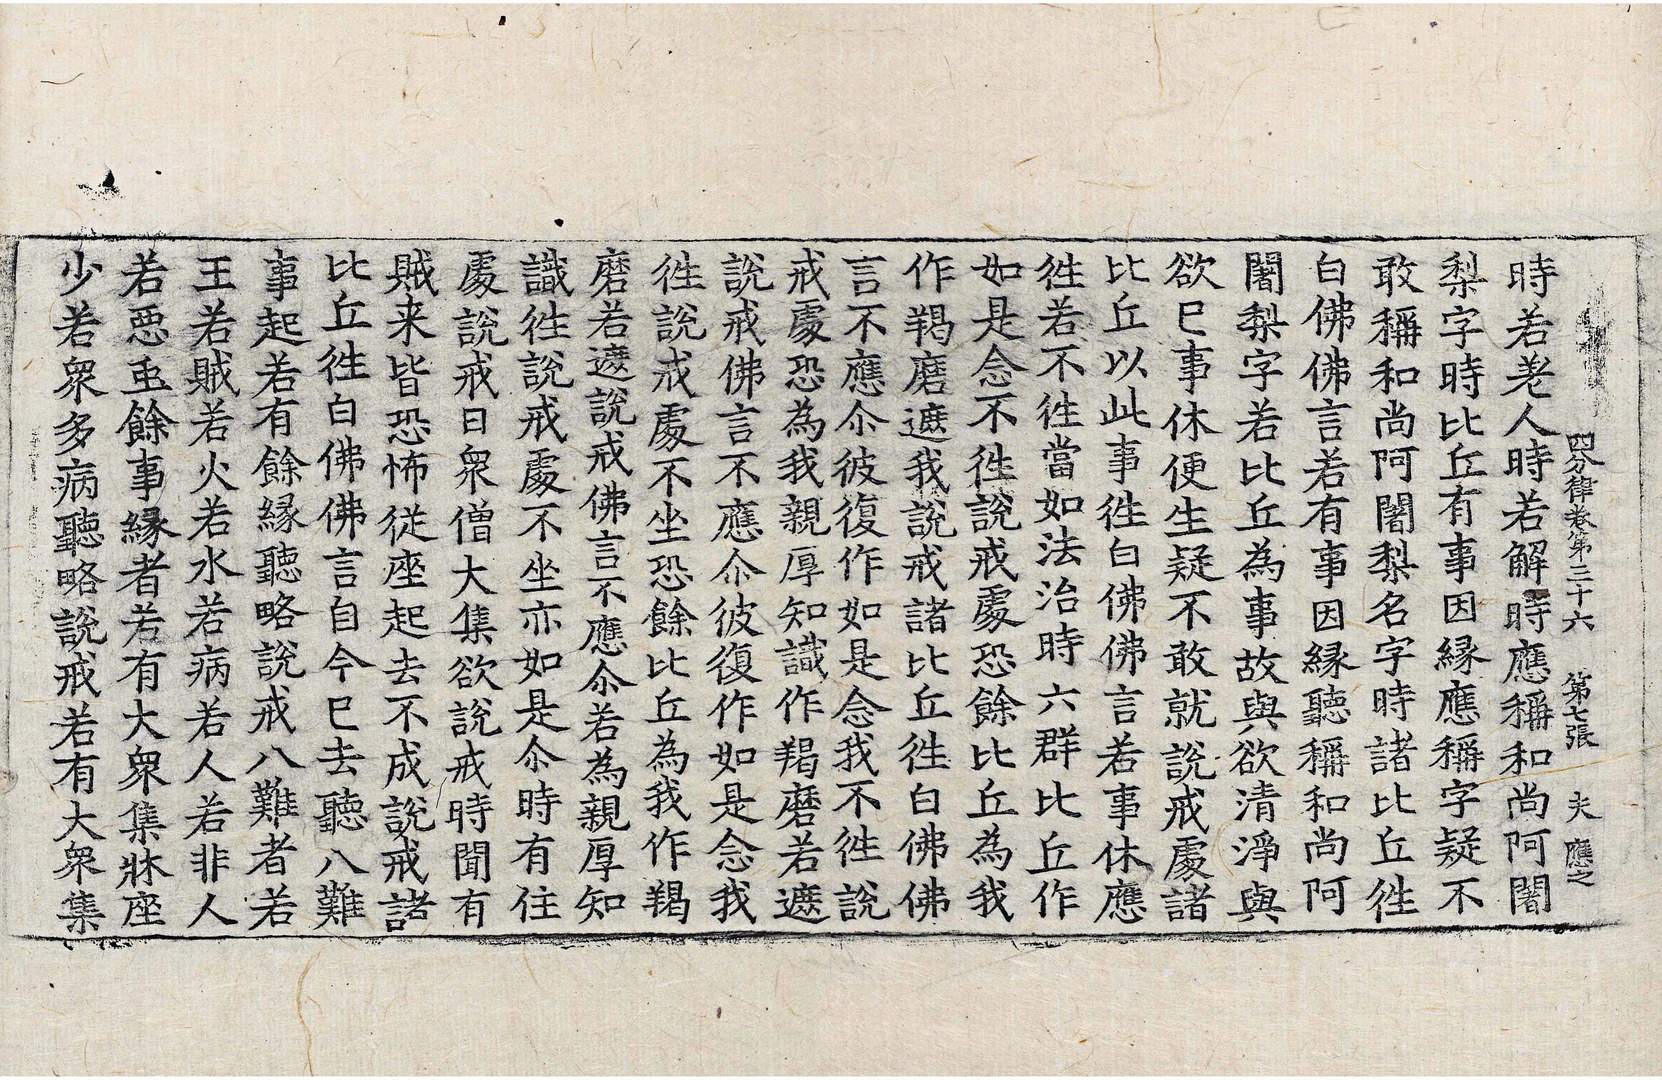 四分律卷第三十六　第七張　夫　應之
時若老人時若解時應稱和尚阿闍
梨字時比丘有事因縁應稱字疑不
敢稱和尚阿闍梨名字時諸比丘徃
白佛佛言若有事因縁聽稱和尚阿
闍梨字若比丘為事故與欲清淨與
欲已事休便生疑不敢就說戒處諸
比丘以此事徃白佛佛言若事休應
徃若不徃當如法治時六群比丘作
如是念不徃說戒處恐餘比丘為我
作羯磨遮我說戒諸比丘徃白佛佛
言不應尒彼復作如是念我不徃說
戒處恐為我親厚知識作羯磨若遮
說戒佛言不應尒彼復作如是念我
徃說戒處不坐恐餘比丘為我作羯
磨若遮說戒佛言不應尒若為親厚知
識徃說戒處不坐亦如是尒時有住
處說戒日眾僧大集欲說戒時聞有
賊来皆恐怖從座起去不成說戒諸
比丘徃白佛佛言自今已去聽八難
事起若有餘縁聽略說戒八難者若
王若賊若火若水若病若人若非人
若惡虫餘事縁者若有大眾集牀座
少若眾多病聽略說戒若有大眾集